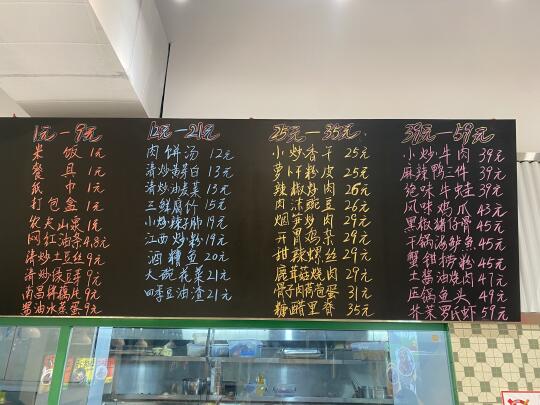 1元—9元
米饭 1元
餐具 1元
纸巾 1元
打包盒 1元
农夫山泉 1元
网红油条 4.8元
清炒土豆丝 9元
清炒绿豆芽 9元
南昌拌藕片 9元
酱油水蒸蛋 9元
12元—21元
肉饼汤 12元
清炒黄芽白 13元
清炒油麦菜 13元
三鲜腐竹 15元
小炒辣子肺 19元
江西炒粉 19元
酒糟鱼 20元
大碗花菜 21元
四季豆油渣 21元
25元—35元
小炒香干 25元
萝卜干粉皮 25元
辣椒炒肉 26元
肉沫豌豆 26元
烟笋炒肉 29元
开胃鸡杂 29元
甜辣螺丝 29元
鹿茸菇烧肉 29元
骨子肉荷包蛋 31元
糖醋里脊 35元
39元—59元
小炒牛肉 39元
麻辣鸭三件 39元
绝味牛蛙 39元
风味鸡爪 43元
黑椒猪仔骨 45元
干锅海鲈鱼 45元
蟹钳捞粉 45元
土酱油烧肉 41元
压锅鱼头 49元
芥菜罗氏虾 59元